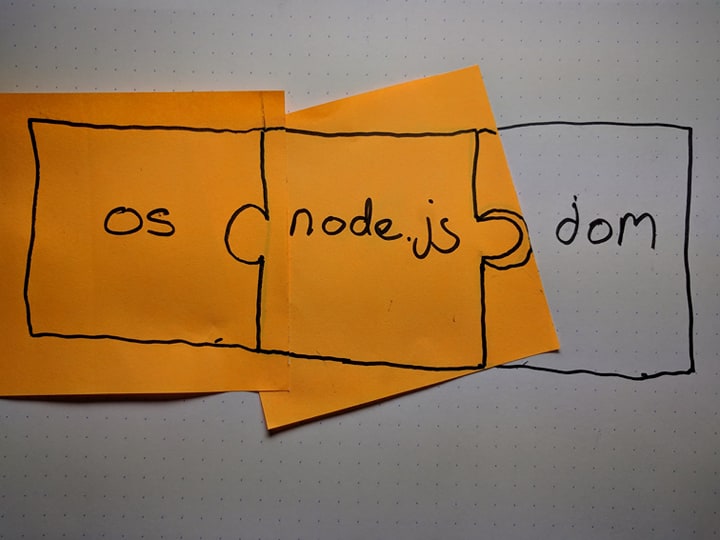 os node.js dom